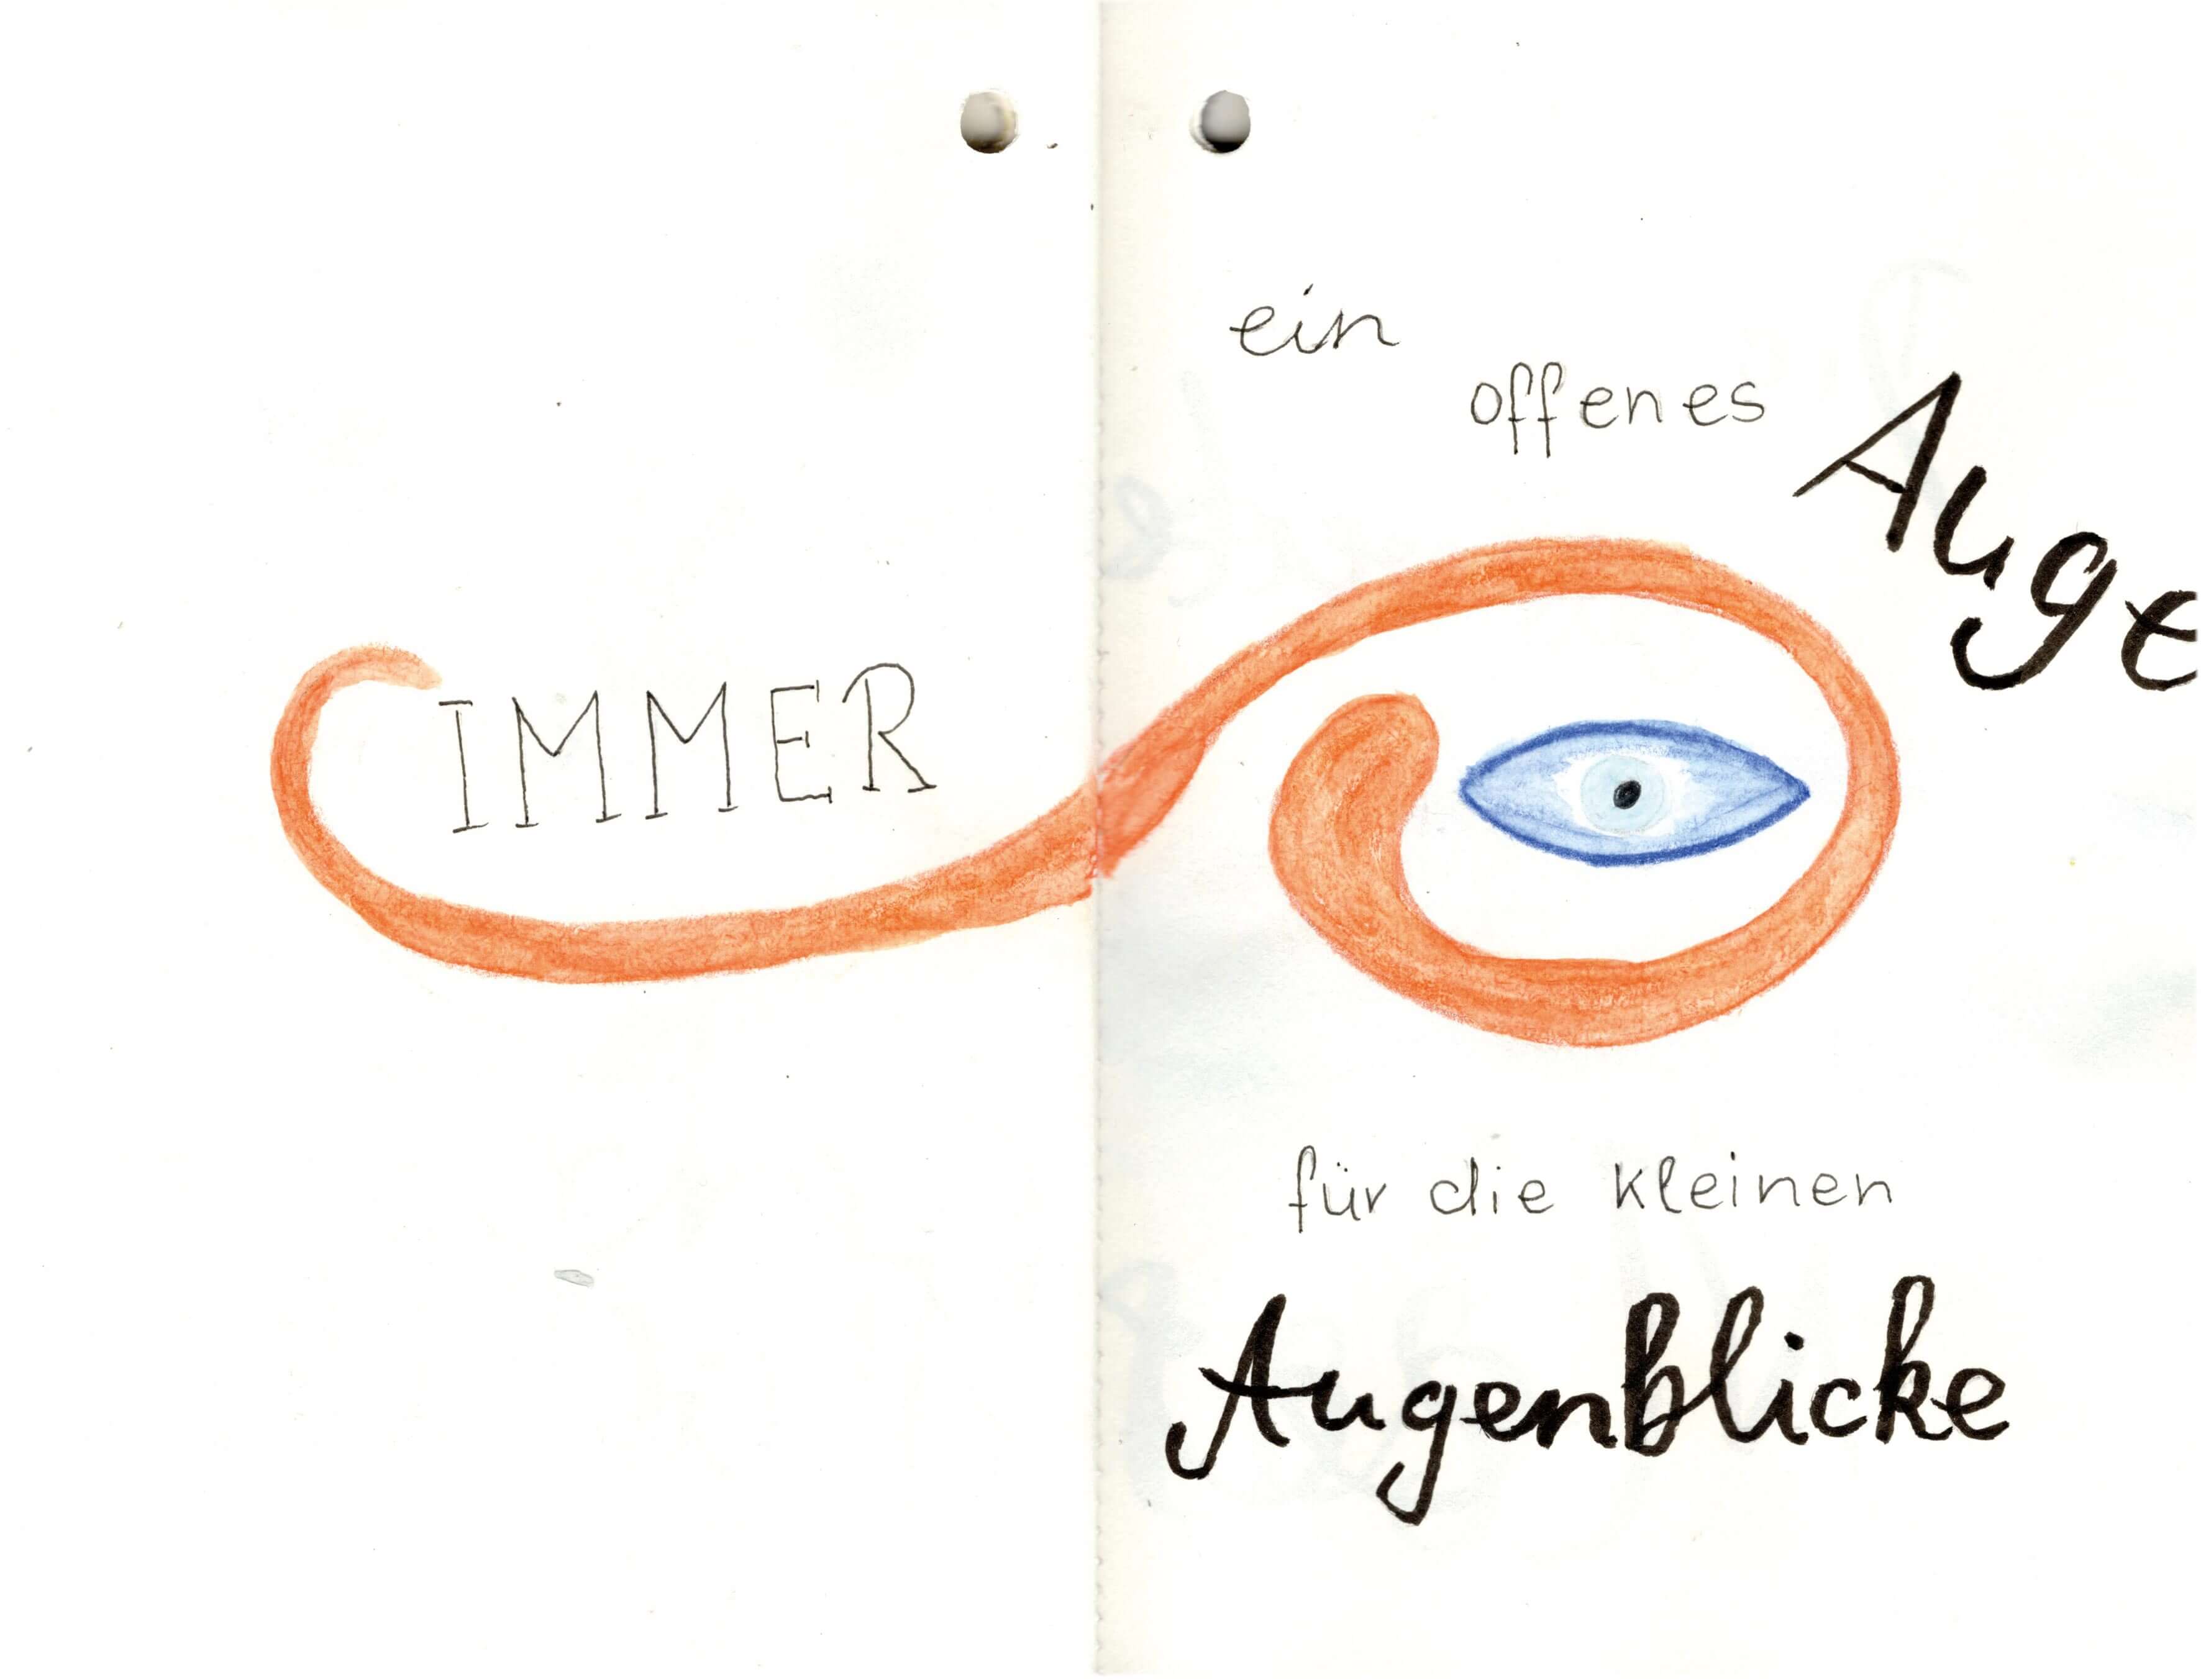 IMMER
ein
offenes
Auge
für die kleinen
Augenblicke